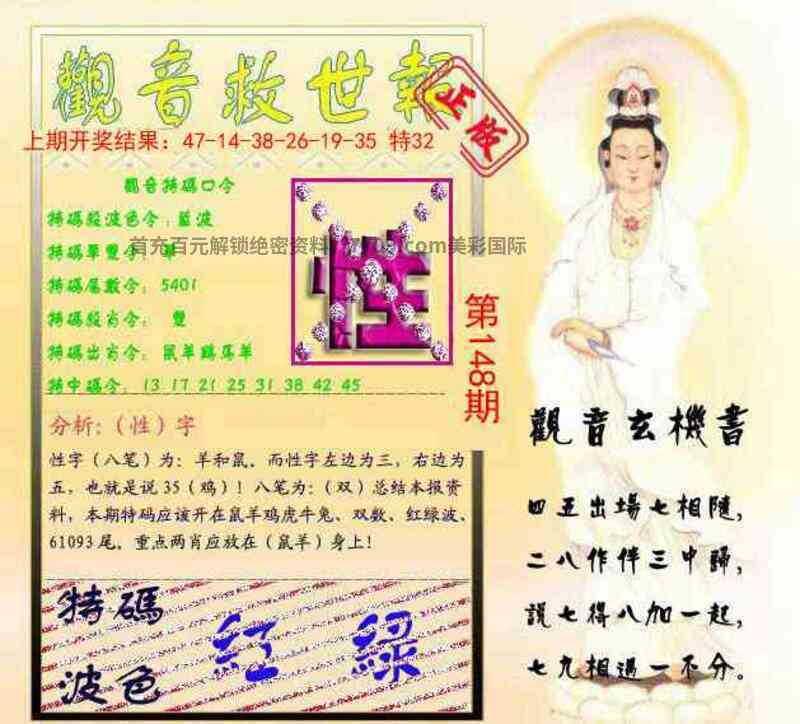 觀音救世報
正版
上期开奖结果：47-14-38-26-19-35 特32
觀音特碼口令
特碼殺波色令：藍波
特碼單雙令：單
首充百元解锁绝密资料
.com美彩国际
特碼尾數令：5401
特碼殺肖令： 雙
特碼出肖令：鼠羊鷄馬羊
特中碼令：13 17 21 25 31 38 42 45
性
第148期
分析:（性）字
性字（八笔）为：羊和鼠。而性字左边为三，右边为
五，也就是说35（鸡）！八笔为：（双）总结本报资
料，本期特码应该开在鼠羊鸡虎牛兔、双数、红绿波、
61093尾。重点两肖应放在（鼠羊）身上！
特碼
波色
紅 綠
觀音玄機書
四五出場七相隨，
二八作伴三中歸，
説七得八加一起，
七九相遇一不分。